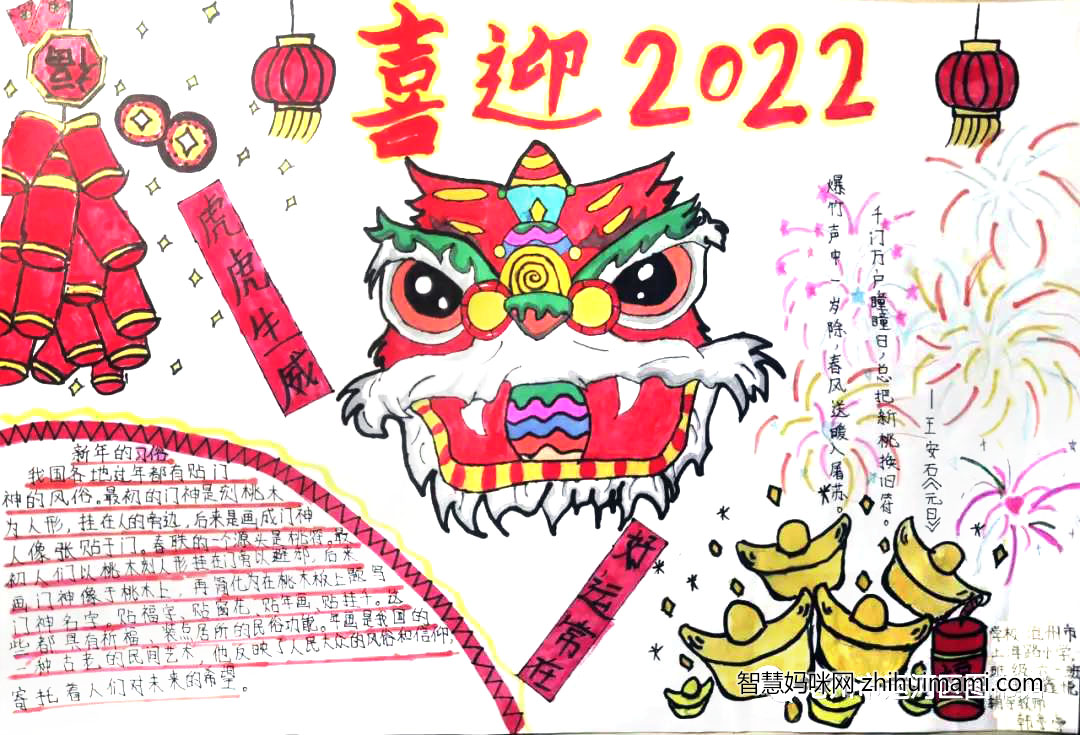 福
喜迎2022
虎虎生威
爆竹声中一岁除,春风送暖入屠苏。
千门万户瞳瞳日,总把新桃换旧符。
——王安石《元日》
新年的习俗
我国各地过年都有贴门
神的风俗。最初的门神是刻桃木
为人形,挂在人的旁边,后来是画成门神
人像张贴于门。春联的一个源头是桃符。最
初人们以桃木刻人形挂在门旁以避邪,后来
画门神像于桃木上,再简化为在桃木板上题写
门神名字。贴福字、贴窗花、贴年画、贴挂千。这
些都具有祈福、装点居所的民俗功能。年画是我国的
一种古老的民间艺术,他反映了人民大众的风俗和信仰,
寄托着人们对未来的希望。
好运常在
学校
智慧妈咪网 zhihuimami.com
辅导教师